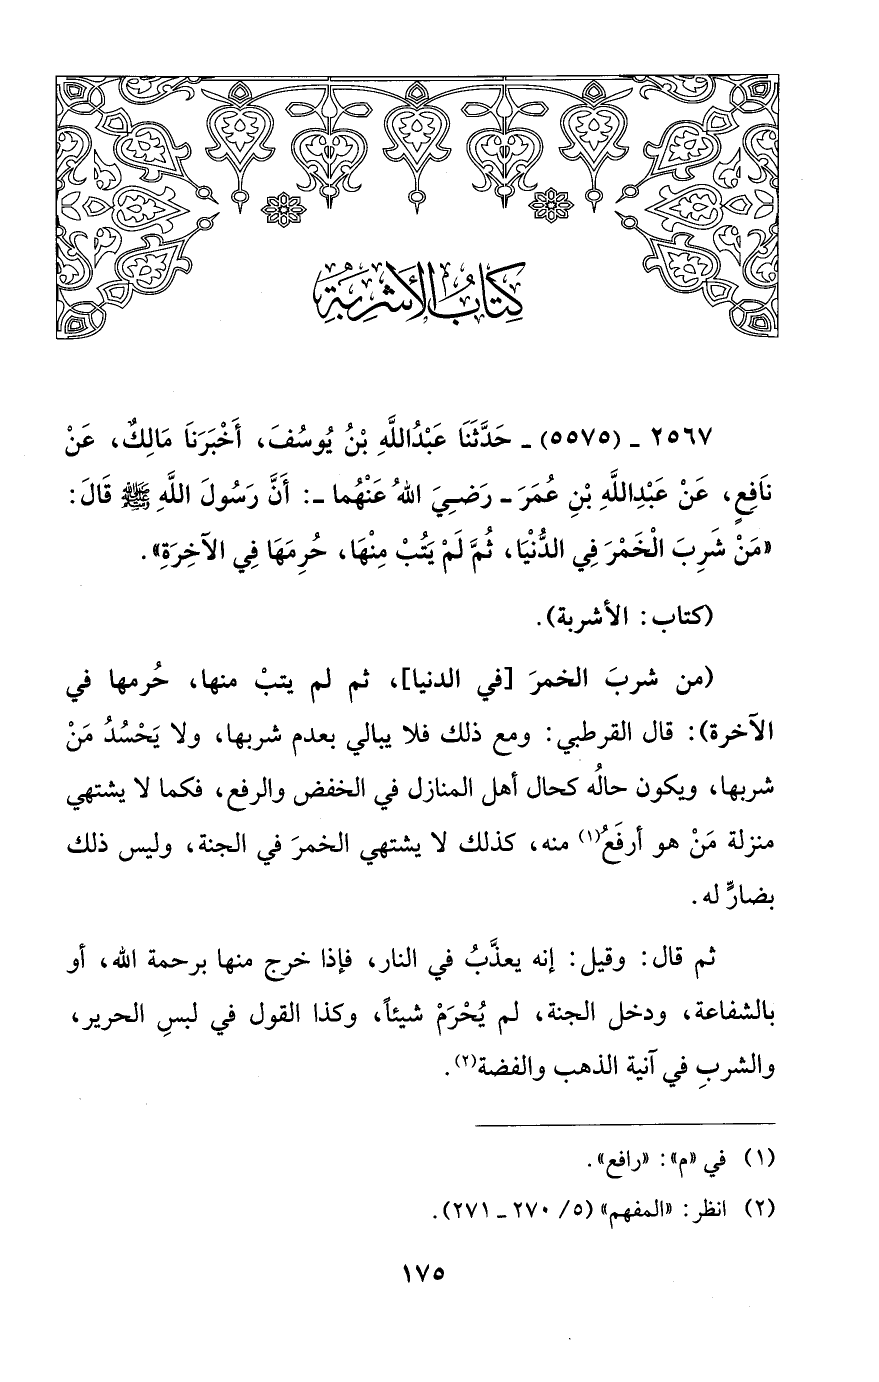 كِتَابُ الأَشْرِبَةِ
٢٥٦٧ ـ (٥٥٧٥) ـ حَدَّثَنَا عَبْدُاللَّهِ بْنُ يُوسُفَ، أَخْبَرَنَا مَالِكٌ، عَنْ
نَافِعٍ، عَنْ عَبْدِاللَّهِ بْنِ عُمَرَ ـ رَضِيَ اللهُ عَنْهُما ـ: أَنَّ رَسُولَ اللَّهِ ﷺ قَالَ:
«مَنْ شَرِبَ الْخَمْرَ فِي الدُّنْيَا، ثُمَّ لَمْ يَتُبْ مِنْهَا، حُرِمَهَا فِي الآخِرَةِ».
(كتاب: الأشربة).
(من شربَ الخمرَ [في الدنيا]، ثم لم يتبْ منها، حُرمها في
الآخرة): قال القرطبي: ومع ذلك فلا يبالي بعدم شربها، ولا يَحْسُدُ مَنْ
شربها، ويكون حالُه كحال أهل المنازل في الخفض والرفع، فكما لا يشتهي
منزلة مَنْ هو أرفَعُ(١) منه، كذلك لا يشتهي الخمرَ في الجنة، وليس ذلك
بضارٍّ له.
ثم قال: وقيل: إنه يعذَّبُ في النار، فإذا خرج منها برحمة الله، أو
بالشفاعة، ودخل الجنة، لم يُحْرَمْ شيئاً، وكذا القول في لبسِ الحرير،
والشربِ في آنية الذهب والفضة(٢).
(١) في «م»: «رافع».
(٢) انظر: «المفهم» (٥/ ٢٧٠ ـ ٢٧١).
١٧٥